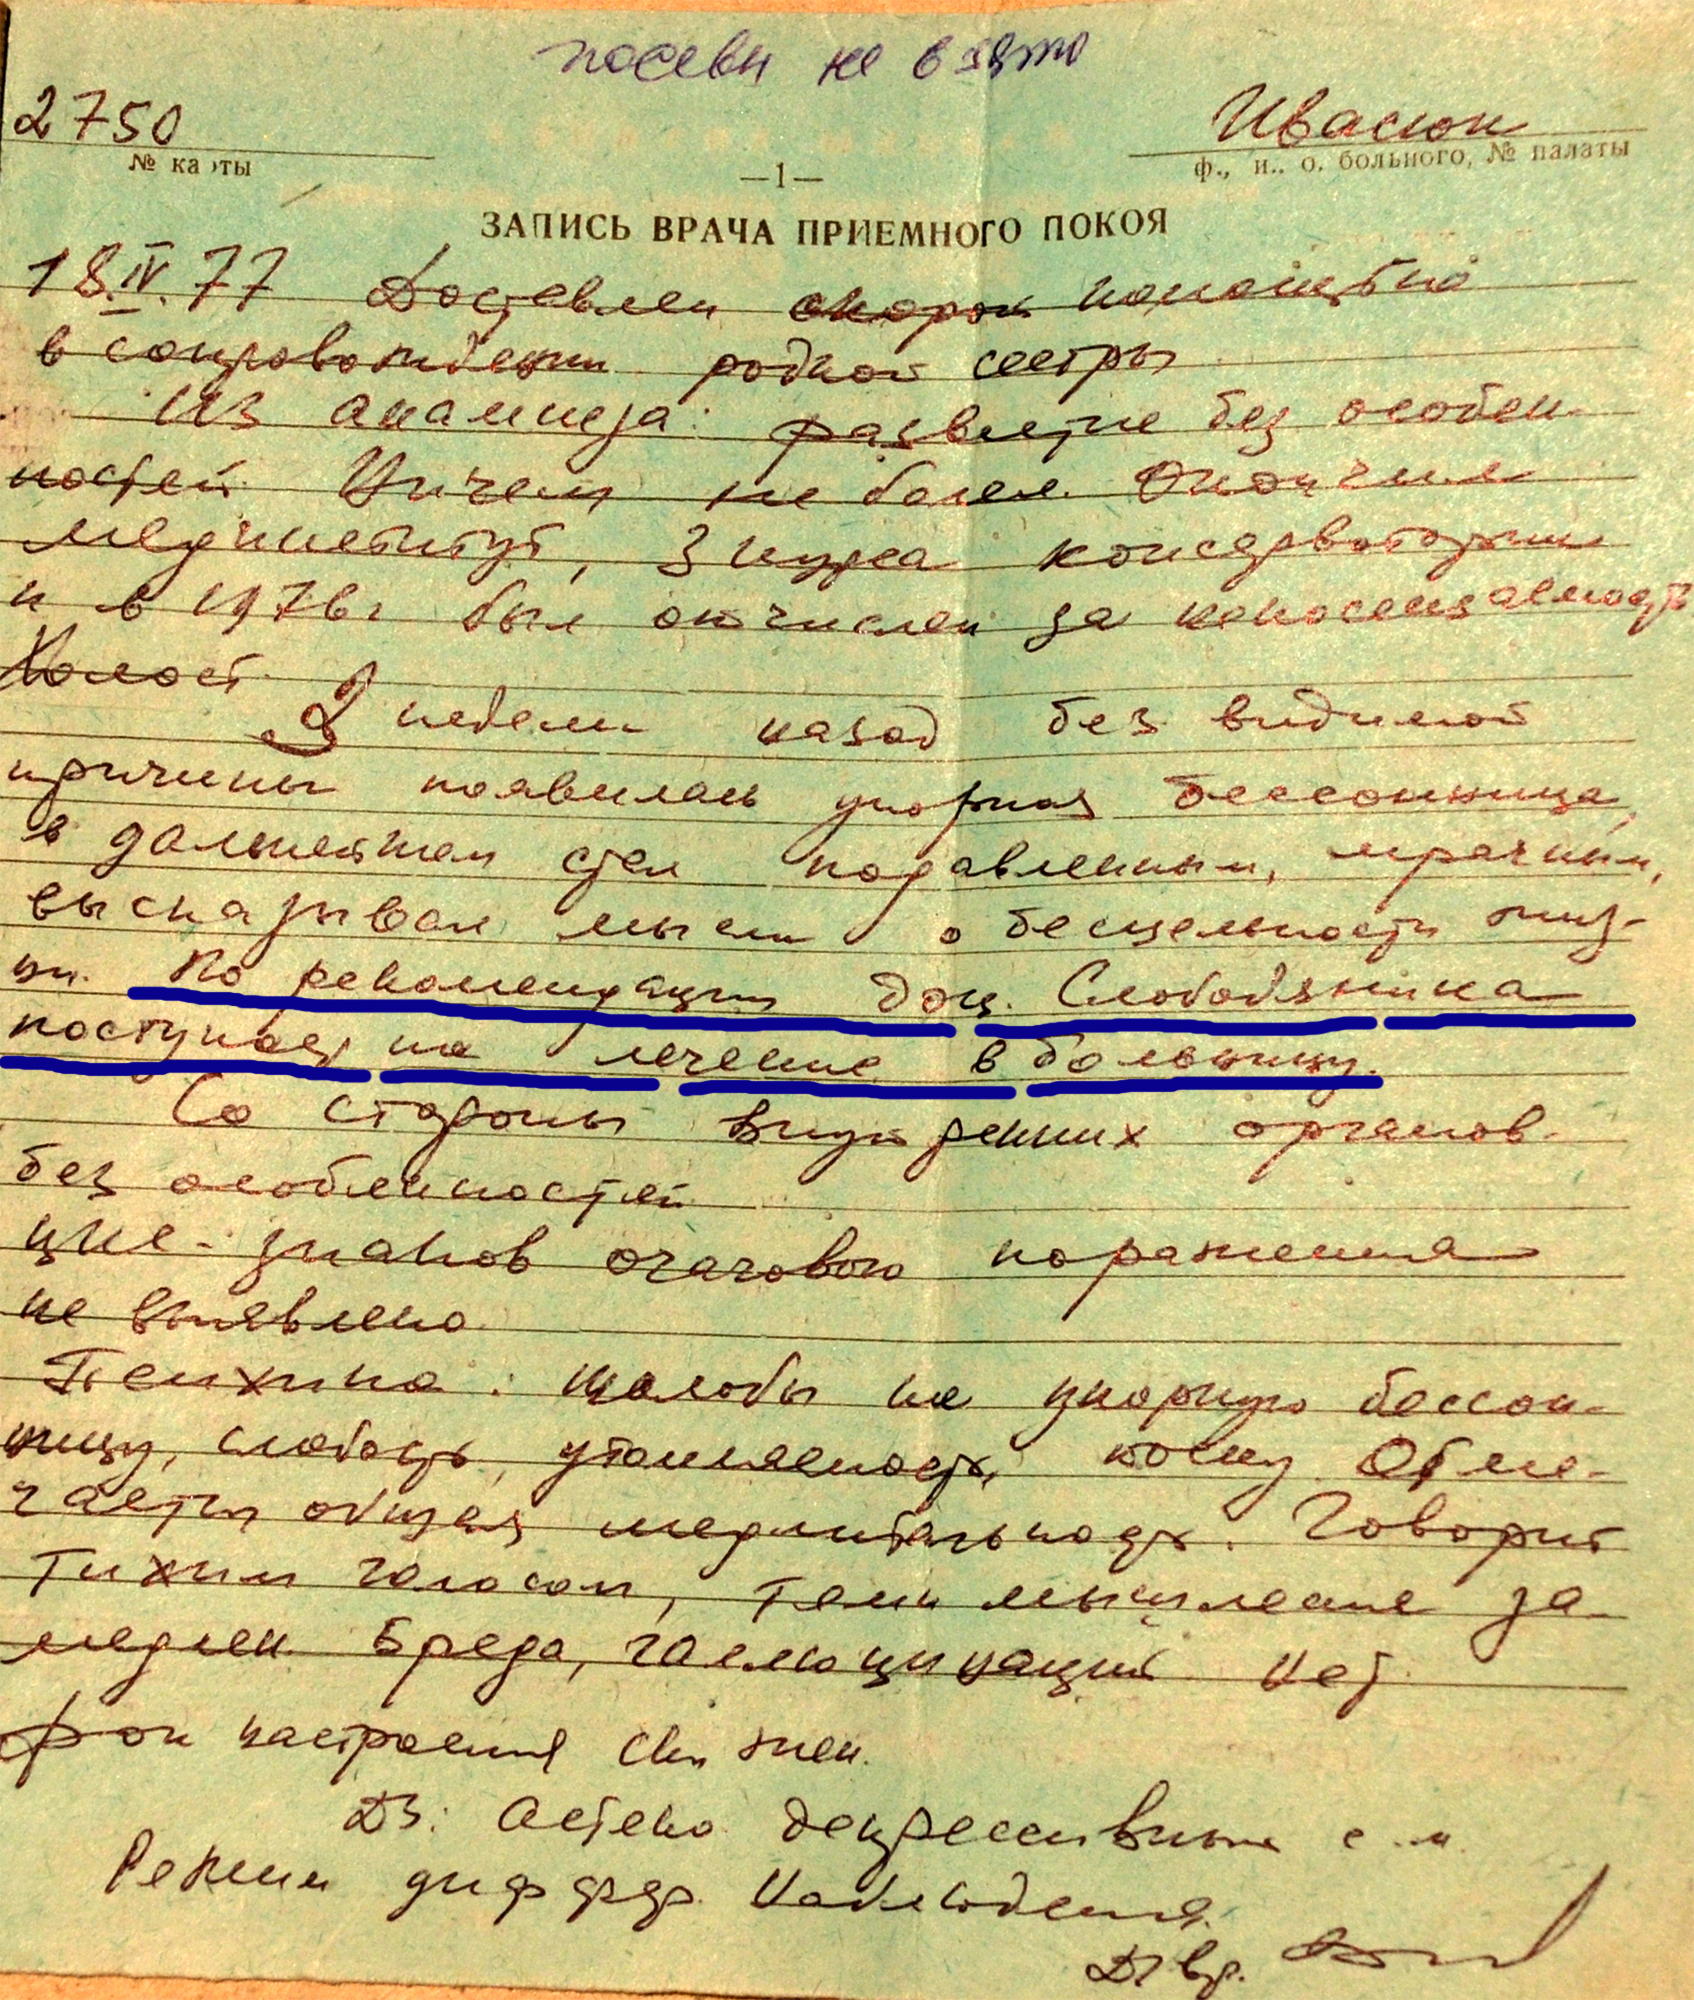 посевы не взято
2750
№ карты
Ивасюк
ф., и.. о. больного, № палаты
—1—
ЗАПИСЬ ВРАЧА ПРИЕМНОГО ПОКОЯ
18.IV.77 Доставлен скорой помощью
в сопровождении родной сестры
Из анамнеза: развитие без особен-
ностей. Ничем не болел. Окончил
мединститут, 3 курса консерватории
и в 1976 г был отчислен за
Холост.
2 недели назад без видимой
причины появилась упорная бессонница,
в дальнейшем стал подавленным, мрачным,
высказывал мысли о бесцельности жиз-
ни. По рекомендации доц. Слободяника
поступает на лечение в больницу.
Со стороны внутренних органов -
без особенностей
ЦНС - знаков очагового поражения
не выявлено
Психика: жалобы на упорную бессон-
ницу, слабость, утомляемость, тоску. Отме-
чается общая медлительность. Говорит
тихим голосом, темп мышления за-
медлен. Бреда, галлюцинаций нет.
Фон настроения снижен.
Дз: Астено депрессивный с-м
Режим диффер. наблюдения.
Д/вр.